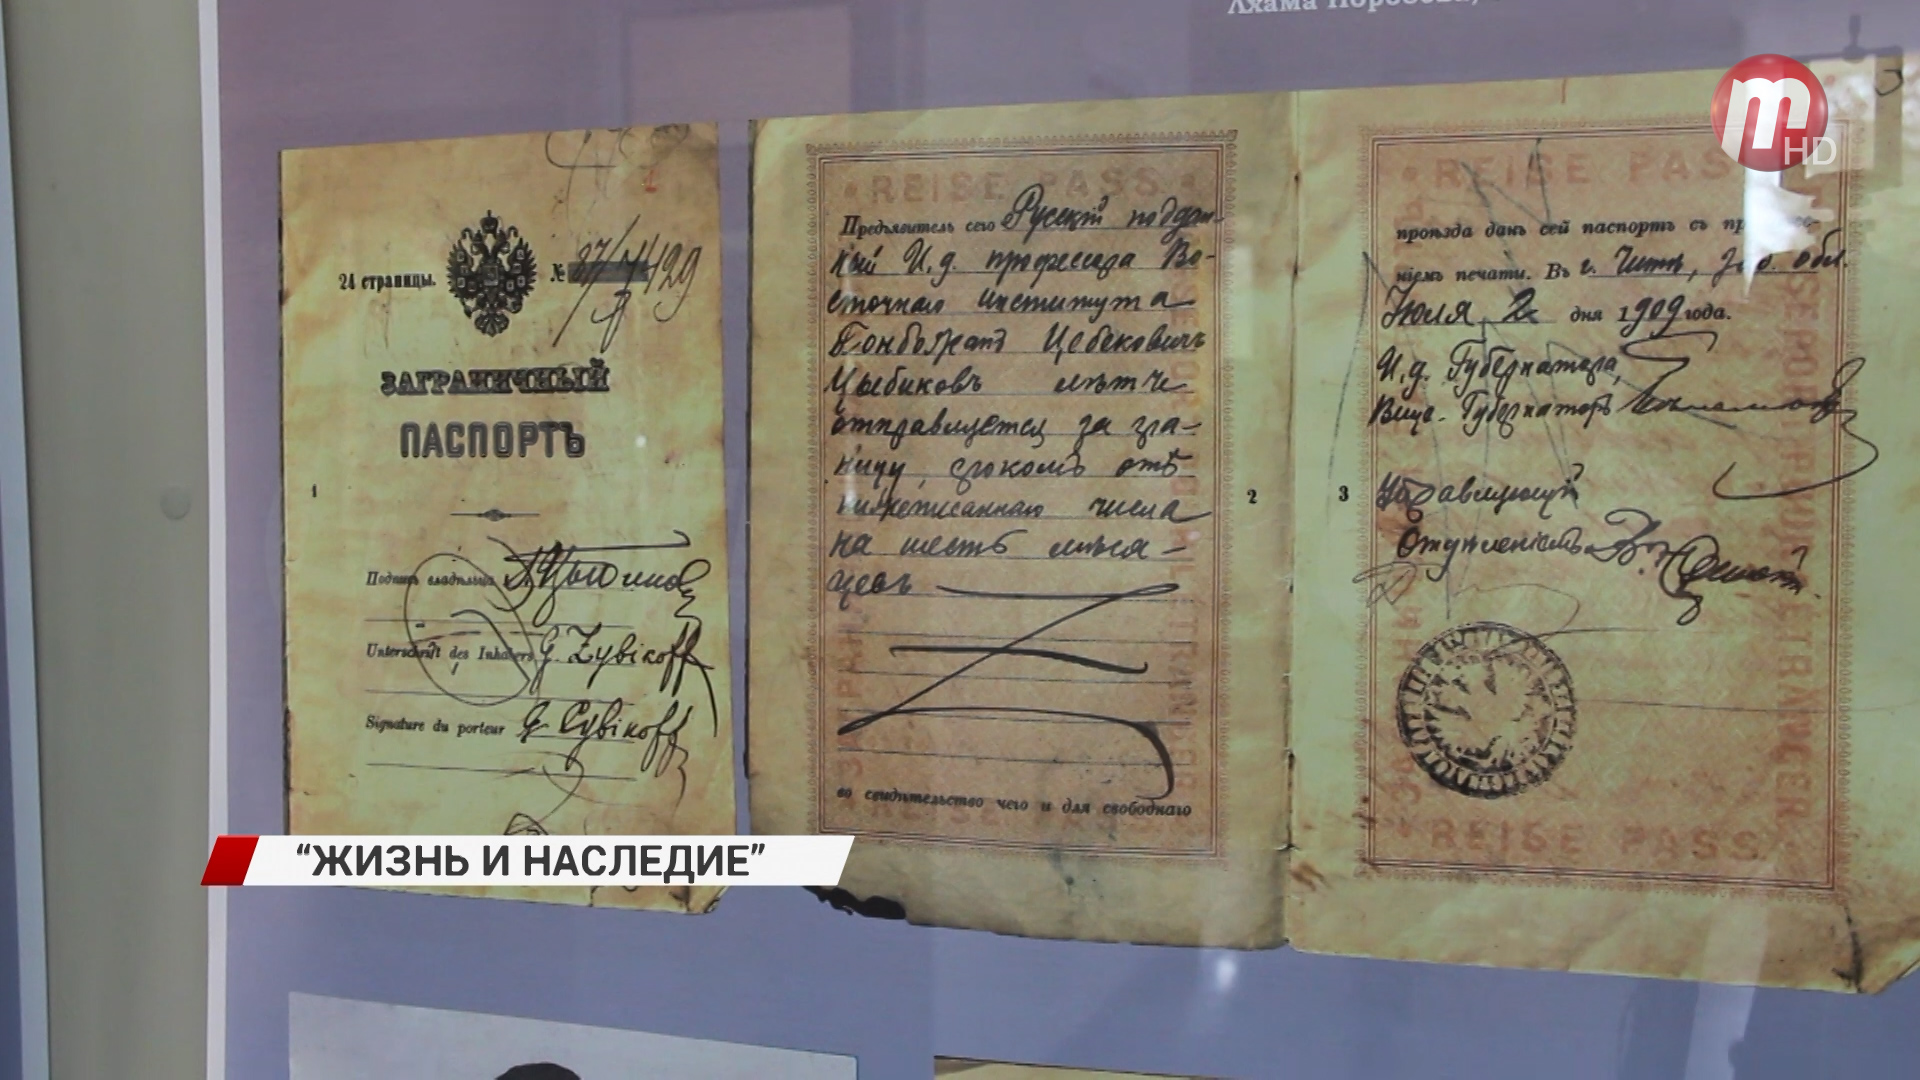 m HD
24 страницы.
№
ЗАГРАНИЧНЫЙ
ПАСПОРТЪ
1
Подпись владѣльца Г. Цыбиков
Unterschrift des Inhabers G. Zybikoff
Signature du porteur G. Cybikoff
REISE PASS
Предъявитель сего Русскій поддан-
ный И.д. профессора Во-
сточнаго института
Гонбожапъ Цебековичъ
Цыбиковъ
отправляется за гра-
ницу, срокомъ отъ
нижеписаннаго числа
на шесть мѣся-
цевъ
во свидѣтельство чего и для свободнаго
REISE PASS
2
REISE PASS
проѣзда данъ сей паспортъ съ
ніемъ печати. Въ г. Читѣ, Заб. обл.
Июля 2 дня 1909 года.
И.д. Губернатора,
Вице-Губернаторъ
3
Управляющій
Отдѣленіемъ
REISE PASS
“ЖИЗНЬ И НАСЛЕДИЕ”